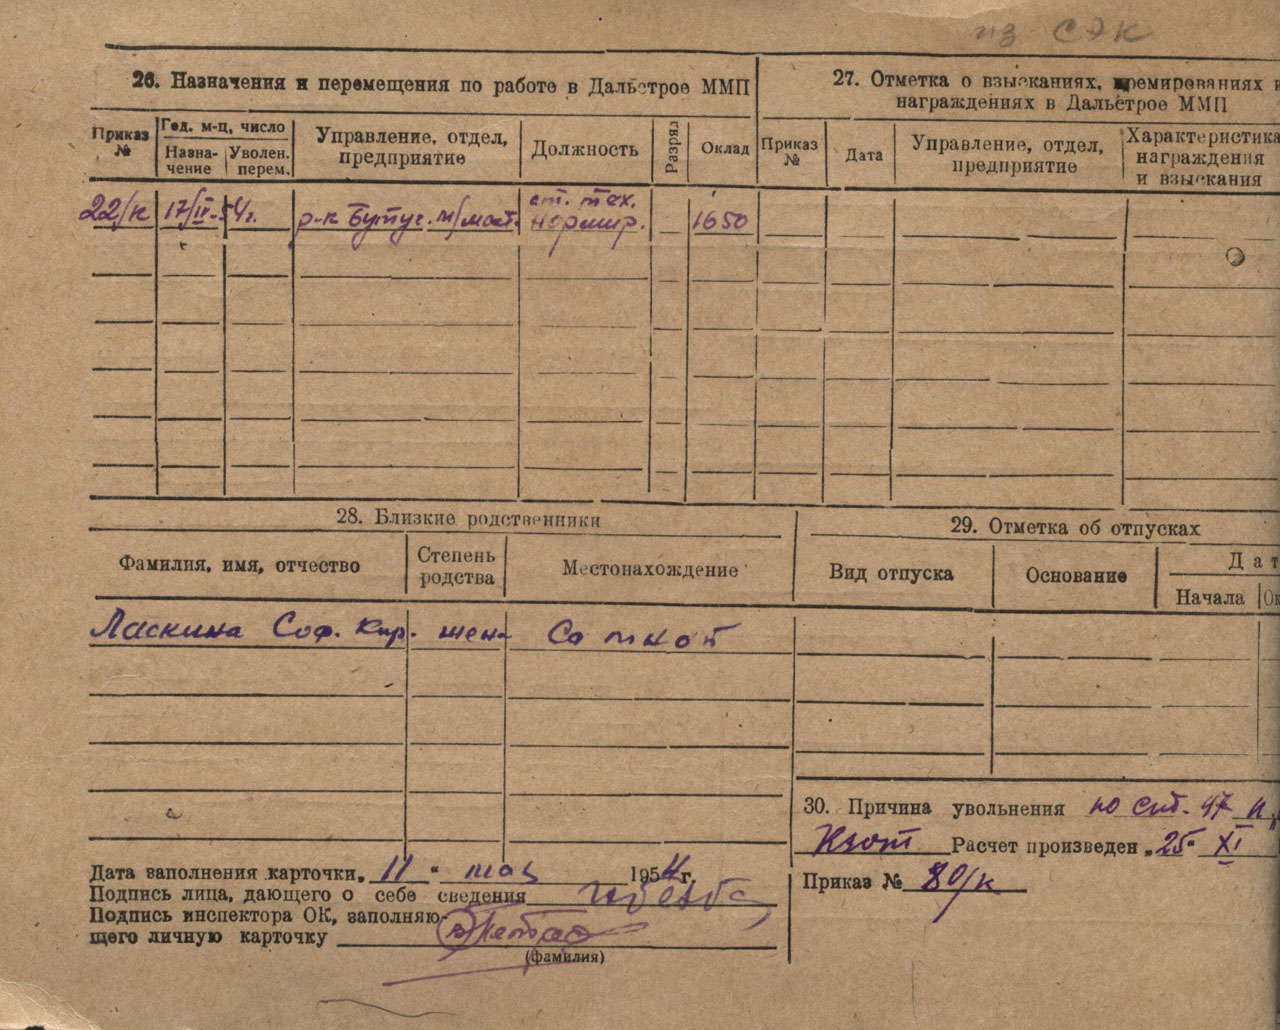 из СЭК
26. Назначения и перемещения по работе в Дальстрое ММП
27. Отметка о взысканиях, премированиях и
награждениях в Дальстрое ММП
Приказ №
Год, м-ц, число
Назна-чение
Уволен. перем.
Управление, отдел, предприятие
Должность
Разряд
Оклад
Приказ №
Дата
Управление, отдел, предприятие
Характеристика награждения и взыскания
22/к 17/IV-54г. р-к Бутуг. ст. тех. нормир. 1650
28. Близкие родственники
29. Отметка об отпусках
Фамилия, имя, отчество
Степень родства
Местонахождение
Вид отпуска
Основание
Дат
Начала
Ок
Ласкина Соф. Кир. жена Со мной
30. Причина увольнения по ст. 47 п.
Кзот Расчет произведен „25“ XI
Приказ № 80/к
Дата заполнения карточки „11“ мая 1954 г.
Подпись лица, дающего о себе сведения
Подпись инспектора ОК, заполняю-
щего личную карточку
(фамилия)